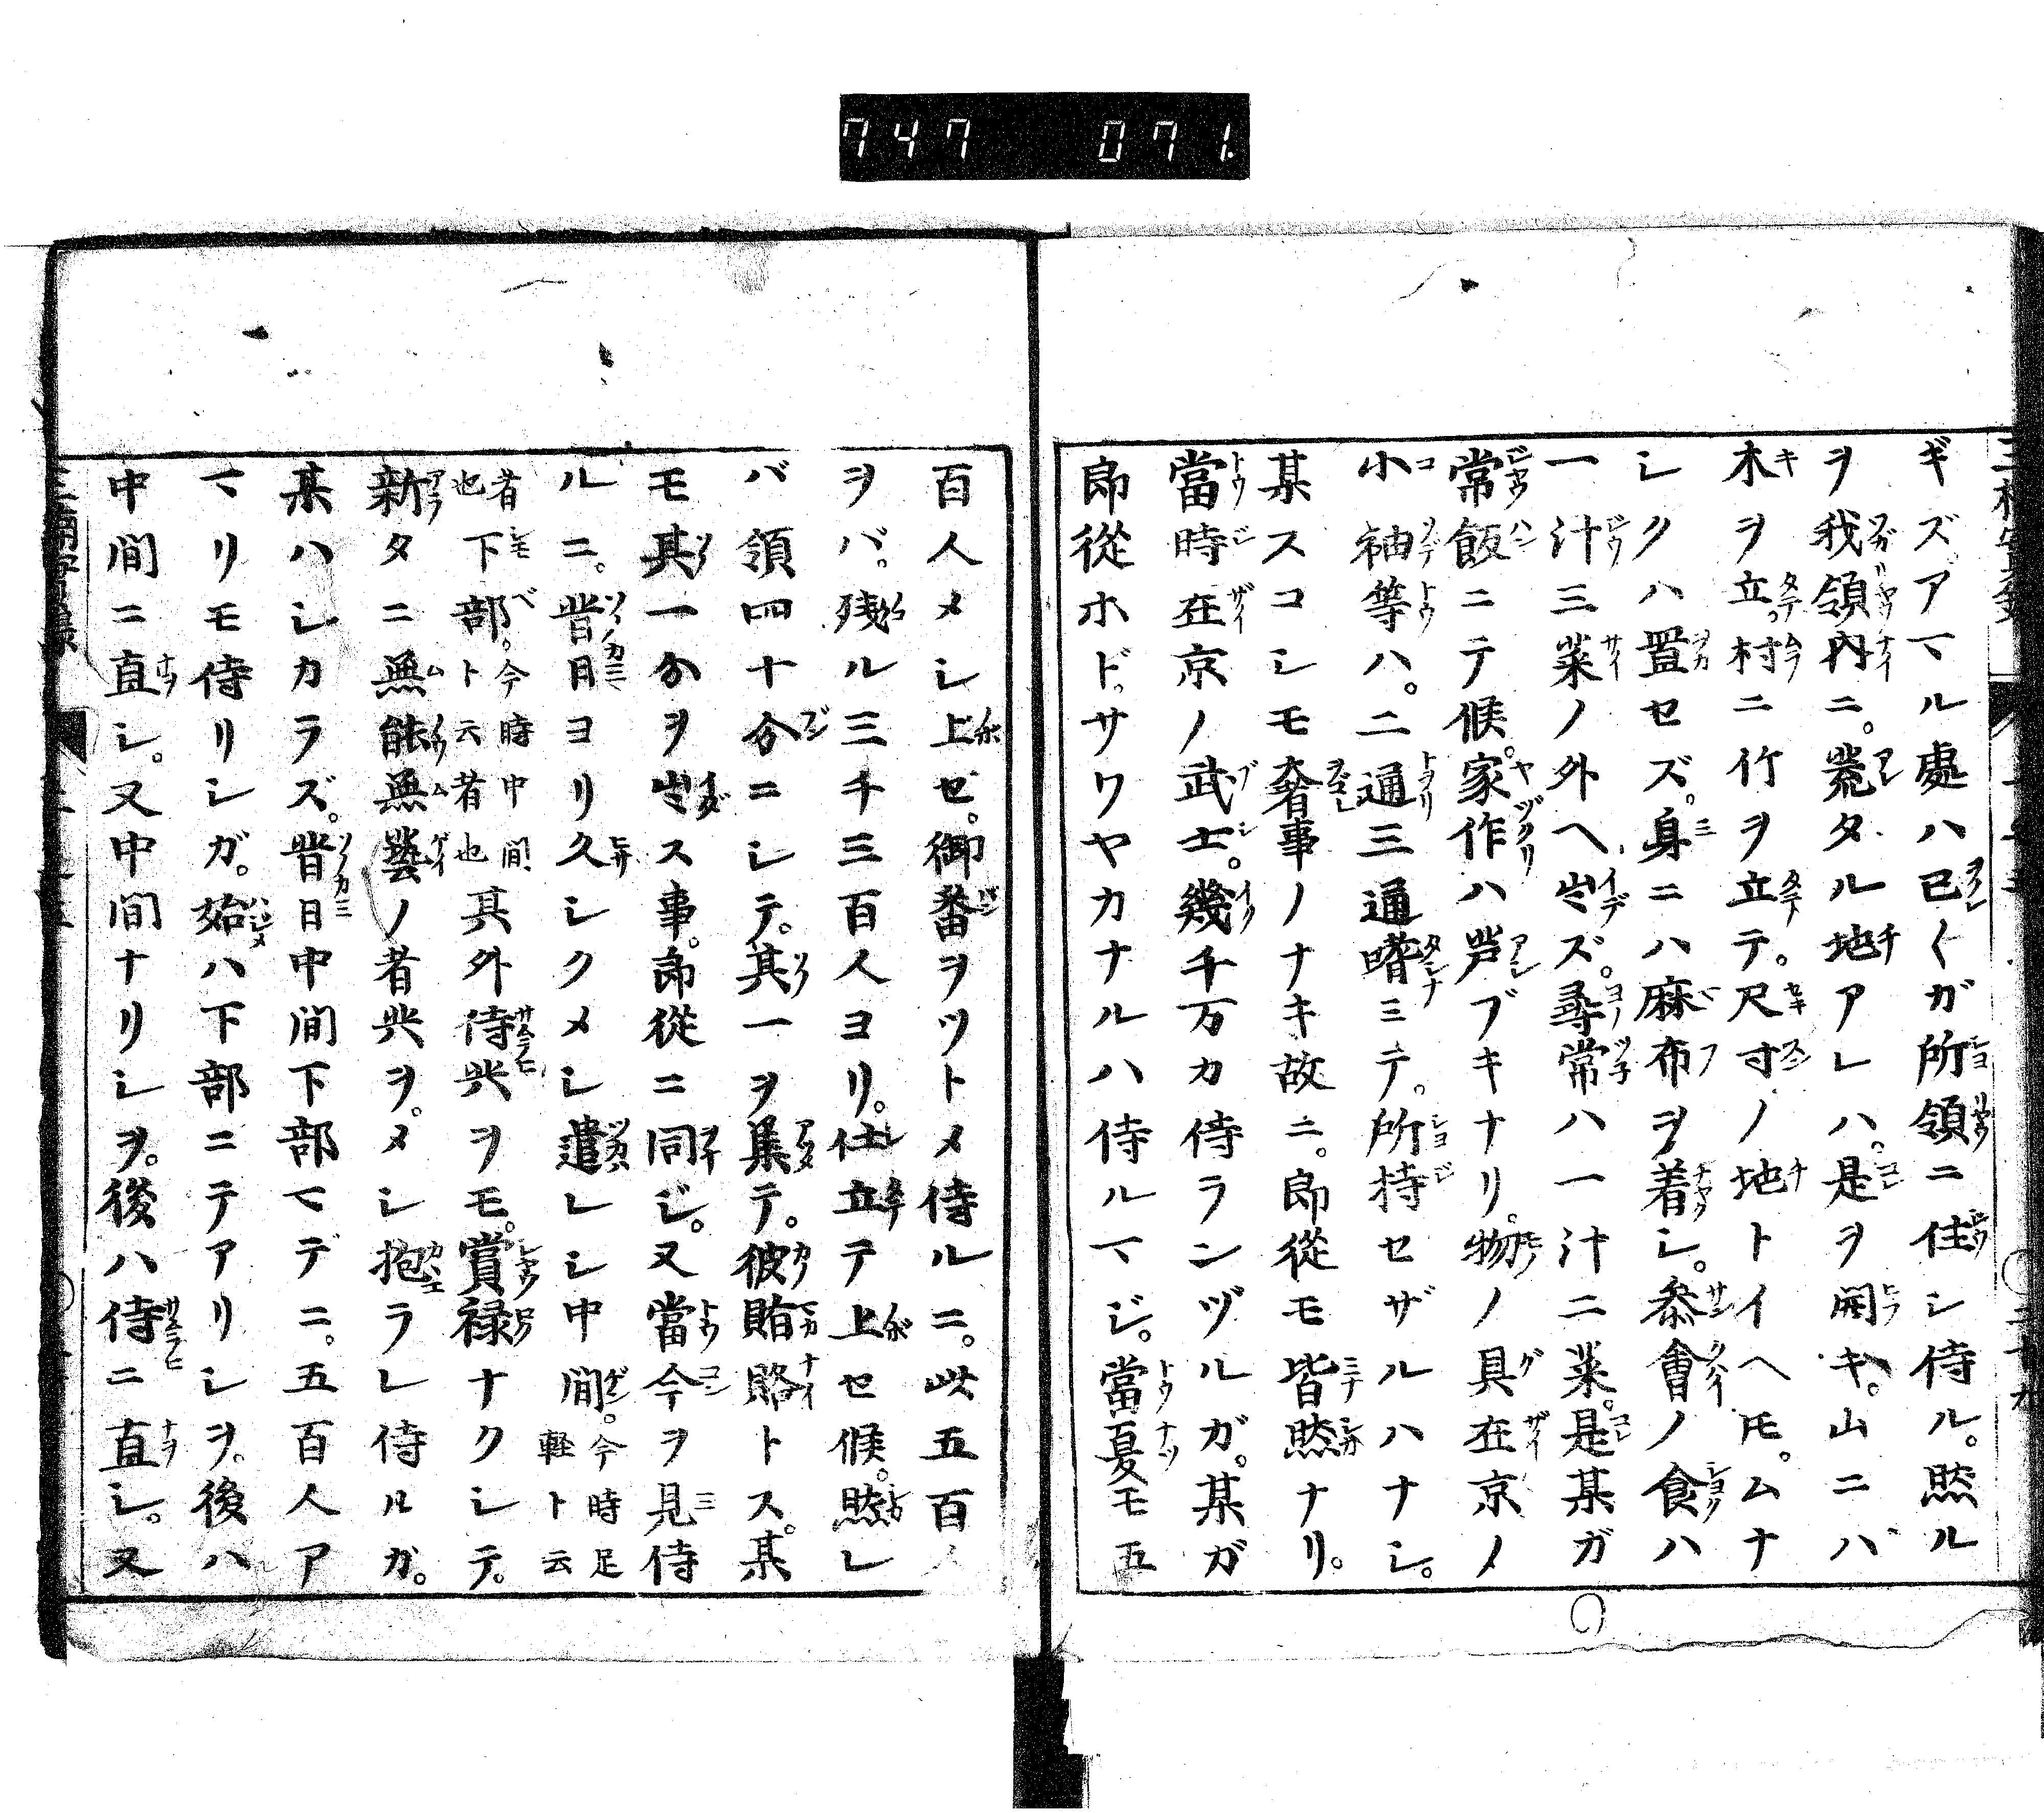 747 071.
ギズアマル處ハ已〱ガ所領ニ住シ侍ル。然ル
ヲ我領内ニ。荒タル地アレハ。是ヲ開キ。山ニハ
木ヲ立。村ニ竹ヲ立テ。尺寸ノ地トイヘ𪜈。ムナ
シクハ置セズ。身ニハ麻布ヲ着シ。參會ノ食ハ
一汁三菜ノ外ヘ出ズ。尋常ハ一汁二菜。是某ガ
常飯ニテ候。家作ハ芦ブキナリ。物ノ具在京ノ
小袖等ハ。二通三通嗜ミテ。所持セザルハナシ。
某スコシモ奢事ノナキ故ニ。郎從モ皆然ナリ。
當時在京ノ武士。幾千万カ侍ランヅルガ。某ガ
郎從ホドサワヤカナルハ侍ルマジ。當夏モ五
百人メシ上セ。御番ヲツトメ侍ルニ。此五百人
ヲバ。残ル三千三百人ヨリ。仕立テ上セ候。然レ
バ領四十分ニシテ。其一ヲ集テ。彼賂賂トス。某
モ其一分ヲ出ス事。郎從ニ同ジ。又當今ヲ見侍
ルニ。昔日ヨリ久シクメシ遣レシ中間。今時足軽ト云
者也下部。今時中間ト云者也其外侍共ヲモ。賞禄ナクシテ。
新タニ無能無藝ノ者共ヲ。メシ抱ラレ侍ルガ。
某ハシカラズ。昔日中間下部マデニ。五百人ア
マリモ侍リシガ。始ハ下部ニテアリシヲ。後ハ
中間ニ直シ。又中間ナリシヲ。後ハ侍ニ直シ。又